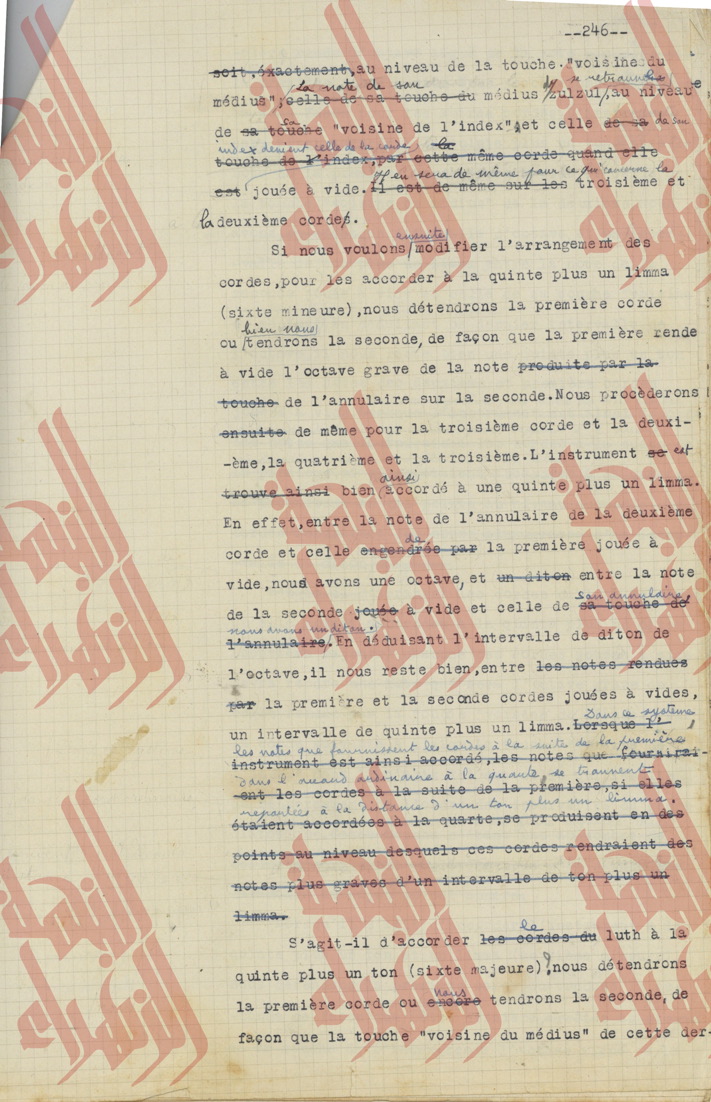 --246--
soit,éxactement,au niveau de la touche "voisine du
La note de son du se retrouvera
médius";celle de sa touche du médius zulzul,au niveau
sa
de sa touche "voisine de l'index",et celle de sa de son
index devient celle de la corde la
touche de l'index,par cette même corde quand elle
Il en sera de même pour ce qui concerne la
est jouée à vide.Il est de même sur les troisième et
la deuxième cordes.
ensuite
Si nous voulons modifier l'arrangement des
cordes,pour les accorder à la quinte plus un limma
(sixte mineure),nous détendrons la première corde
bien nous
ou tendrons la seconde,de façon que la première rende
à vide l'octave grave de la note produite par la
touche de l'annulaire sur la seconde.Nous procèderons
ensuite de même pour la troisième corde et la deuxi-
-ème,la quatrième et la troisième.L'instrument se est
ainsi
trouve ainsi bien accordé à une quinte plus un limma.
En effet,entre la note de l'annulaire de la deuxième
de
corde et celle engendrée par la première jouée à
vide,nous avons une octave,et un diton entre la note
son annulaire,
de la seconde jouée à vide et celle de sa touche de
nous avons un diton.
l'annulaire.En déduisant l'intervalle de diton de
l'octave,il nous reste bien,entre les notes rendues
par la première et la seconde cordes jouées à vides,
Dans ce système
un intervalle de quinte plus un limma.Lorsque l'
les notes que fournissent les cordes à la suite de la première
instrument est ainsi accordé,les notes que fournirai-
dans l'accord ordinaire à la quarte, se trouvent
-ent les cordes à la suite de la première,si elles
reportées à la distance d'un ton plus un limma.
étaient accordées à la quarte,se produisent en des
points au niveau desquels ces cordes rendraient des
notes plus graves d'un intervalle de ton plus un
limma.
le
S'agit-il d'accorder les cordes du luth à la
quinte plus un ton (sixte majeure)?nous détendrons
nous
la première corde ou encore tendrons la seconde,de
façon que la touche "voisine du médius" de cette der-